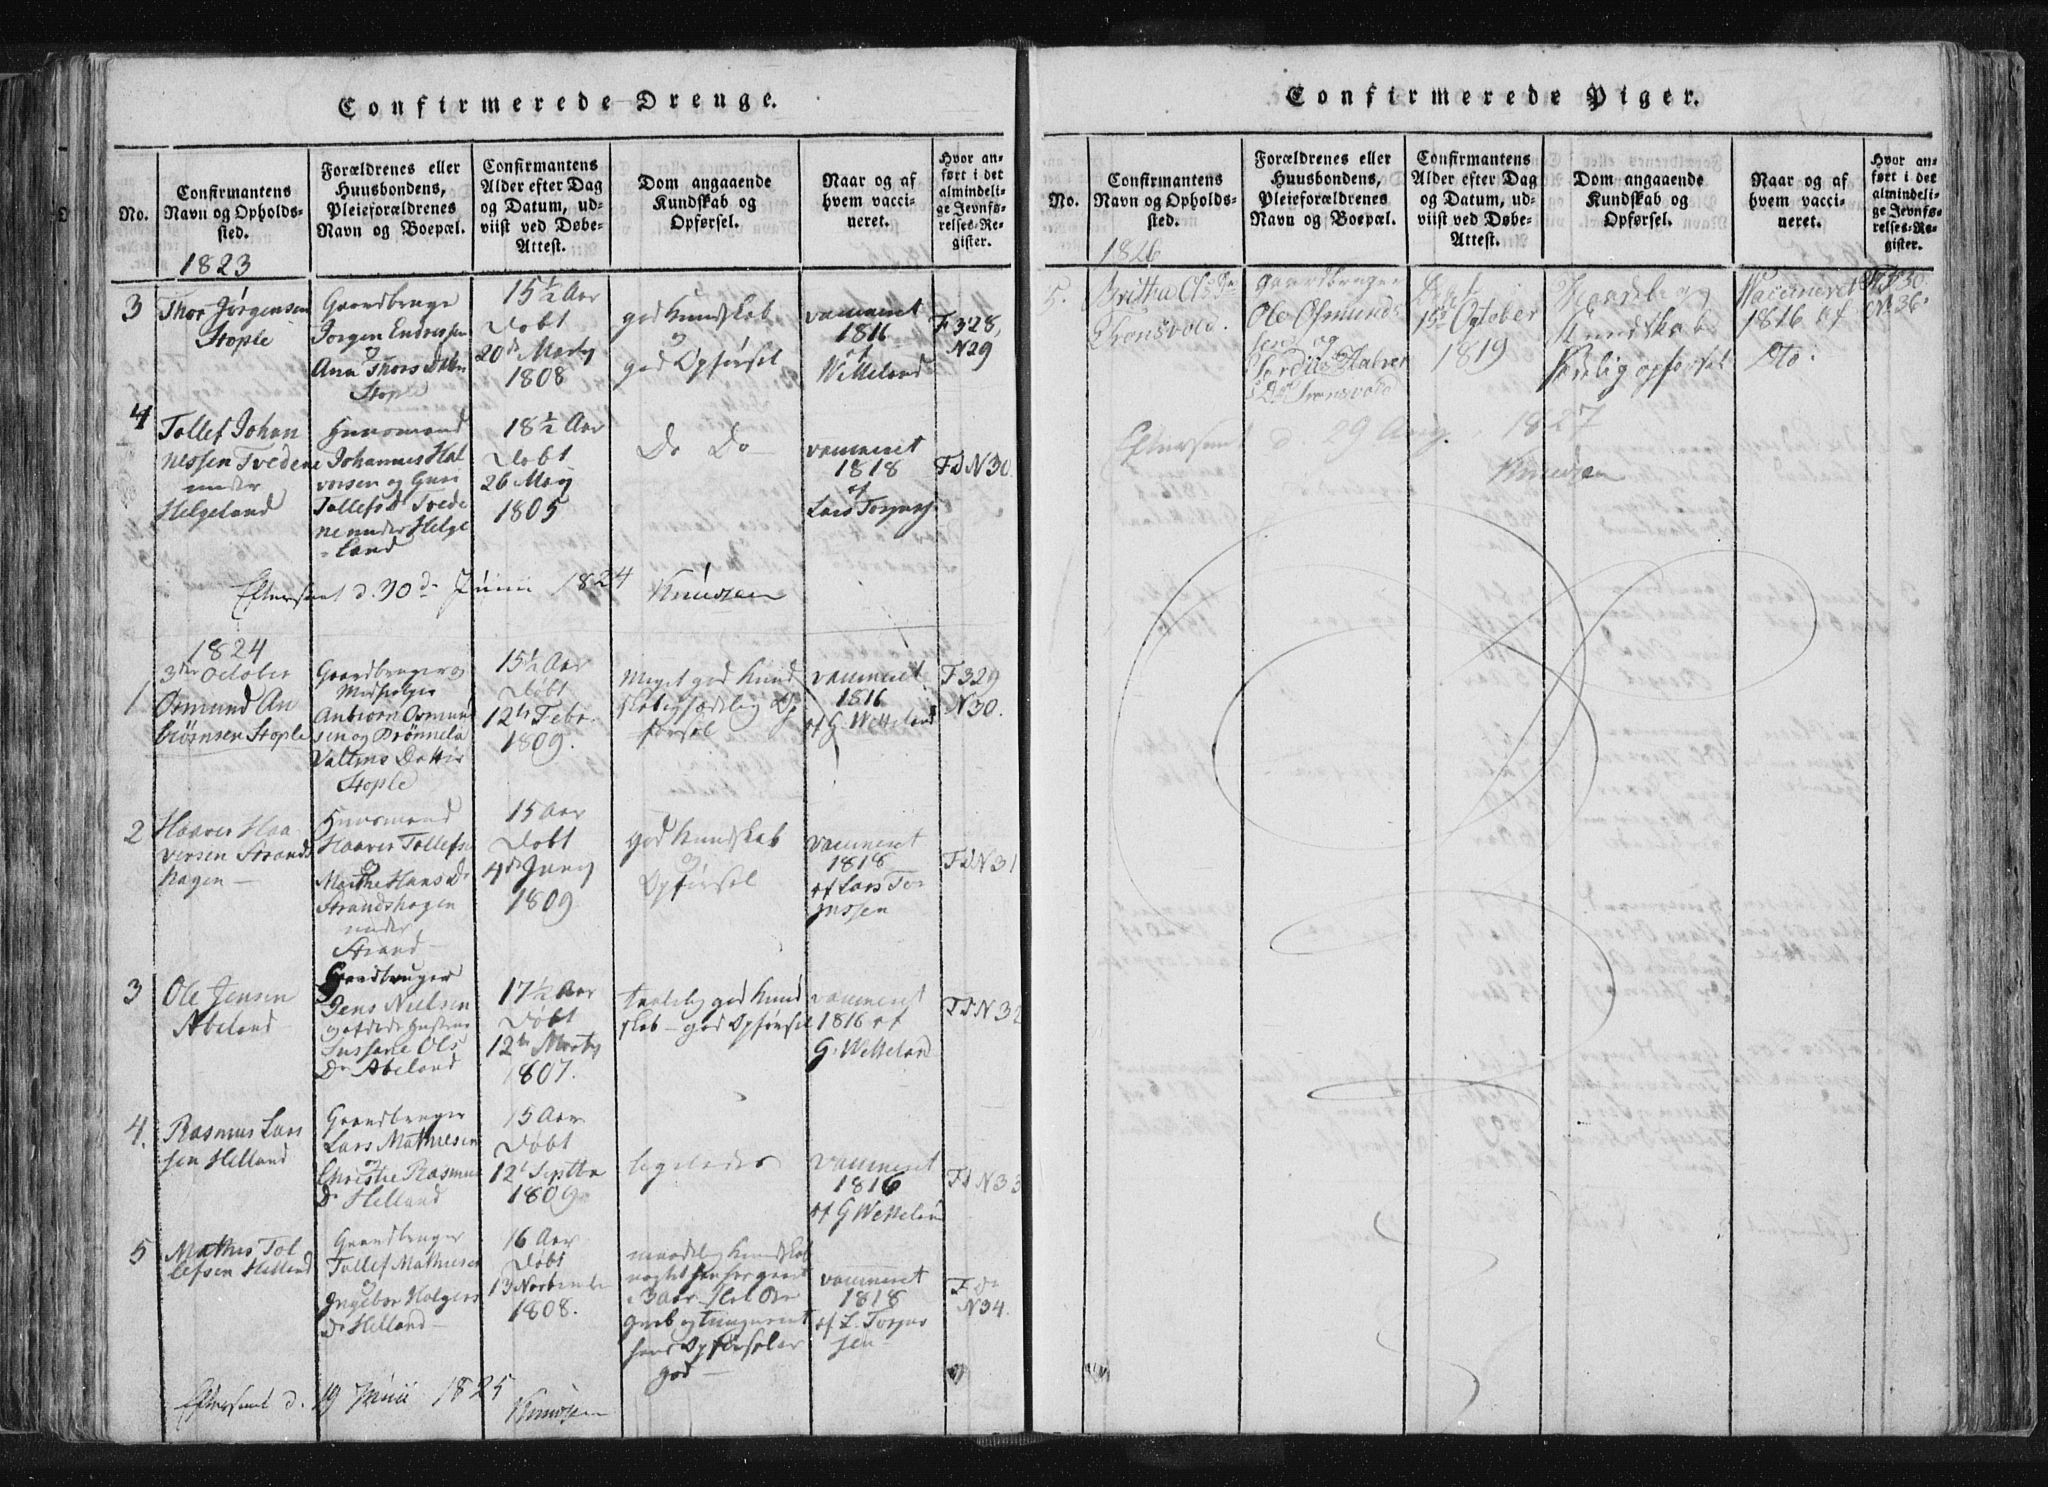 Confirmerede Drenge.
No.
Confirmantens
Navn og Opholds-
sted.
Forældrenes eller
Huusbondens,
Pleieforældrenes
Navn og Boepæl.
Confirmantens
Alder efter Dag
og Datum, ud-
viist ved Døbe-
Attest.
Dom angaaende
Kundskab og
Opførsel.
Naar og af
hvem vacci-
neret.
Hvor an-
ført i det
almindeli-
ge Jevnfø-
relses-Re-
gister.
1823
3
Thor Jørgensen
Stople
Gaardbruger
Jørgen Endressen
og
Ana Thors Dttr
Stople
15½ Aar
Døbt
20de Marty
1808
god Kundskab
og
god Opførsel
vaccineret
1816
af
Wetteland
F 328,
N 29
4
Tollef Johan
nessen Tvedene
under
Helgeland
Huusmand
Johannes Hal
vorsen og Guri
Tollefs Dr Tvede
ne under Helge
land
18½ Aar
Døbt
26 May
1805
Do Do
vaccineret
1818
af
Lars Torjusj
F d N 30.
Efterseet d. 30d Junii 1824 Knudsen
1824
3die October
1
Osmund An
biørnsen Stople
Gaardbruger og
Medhjelper
Anbiørn Osmund
sen og Drønnela
Valtins Datter
Stople
15½ Aar
Døbt
12te Febr.
1809.
Meget god Kund
skab og sædelig Op
førsel
vaccineret
1816
af G. Wetteland
F 329
N 30.
2
Haaver Haa
versen Strands
hagen
Huusmand
Haaver Tollefs
og
Marthe Hans Dr
Strandshagen
under
Strand
15 Aar
Døbt
4de Juny
1809
god Kundskab
og
Opførsel
vaccineret
1818
af Lars Tor
jussen
F d N 31
3
Ole Jensen
Abeland
Gaardbruger
Jens Nielsen
og afdøde Hustrue
Sussane Ols
Dr Abeland
17½ Aar
Døbt
12te Marty
1807.
taalelig god Kund
skab - god Opførsel
vaccineret
1816 af
G. Wetteland
F d N 32
4.
Rasmus Lars
sen Helland
Gaardbruger
Lars Mathiesen
og
Christie Rasmus
Dr Helland
15 Aar
Døbt
12t Septbr
1809
ligeledes
vaccineret
1816
af G Wettelan
F d N 33
5
Mathis Tol
lefsen Helland
Gaardbruger
Tollef Mathiesen
og
Ingebor Holgers
Dr Helland
16 Aar
Døbt
13 Novbember
1808.
maadelig Kundskab
3 Aar
hans Opførsel er
god
vaccineret
1818
af L. Torjus
sen
F do
N 34.
Efterseet d. 19 Junii 1825
Knudsen
Confirmerede Piger.
No.
Confirmantens
Navn og Opholds-
sted.
Forældrenes eller
Huusbondens,
Pleieforældrenes
Navn og Boepæl.
Confirmantens
Alder efter Dag
og Datum, ud-
viist ved Døbe-
Attest.
Dom angaaende
Kundskab og
Opførsel.
Naar og af
hvem vacci-
neret.
Hvor an-
ført i det
almindeli-
ge Jevnfø-
relses-Re-
gister.
1826
5.
Britha Ols Dr
Thonsvold.
Gaardbruger
Ole Osmunds
sen og
Halvor
Døbt
15 October
1819
Kundskab
opførsel
Vaccineret
1816 af
Dto.
N 36
Efterseet d. 29 Aug. 1827
Knudsen